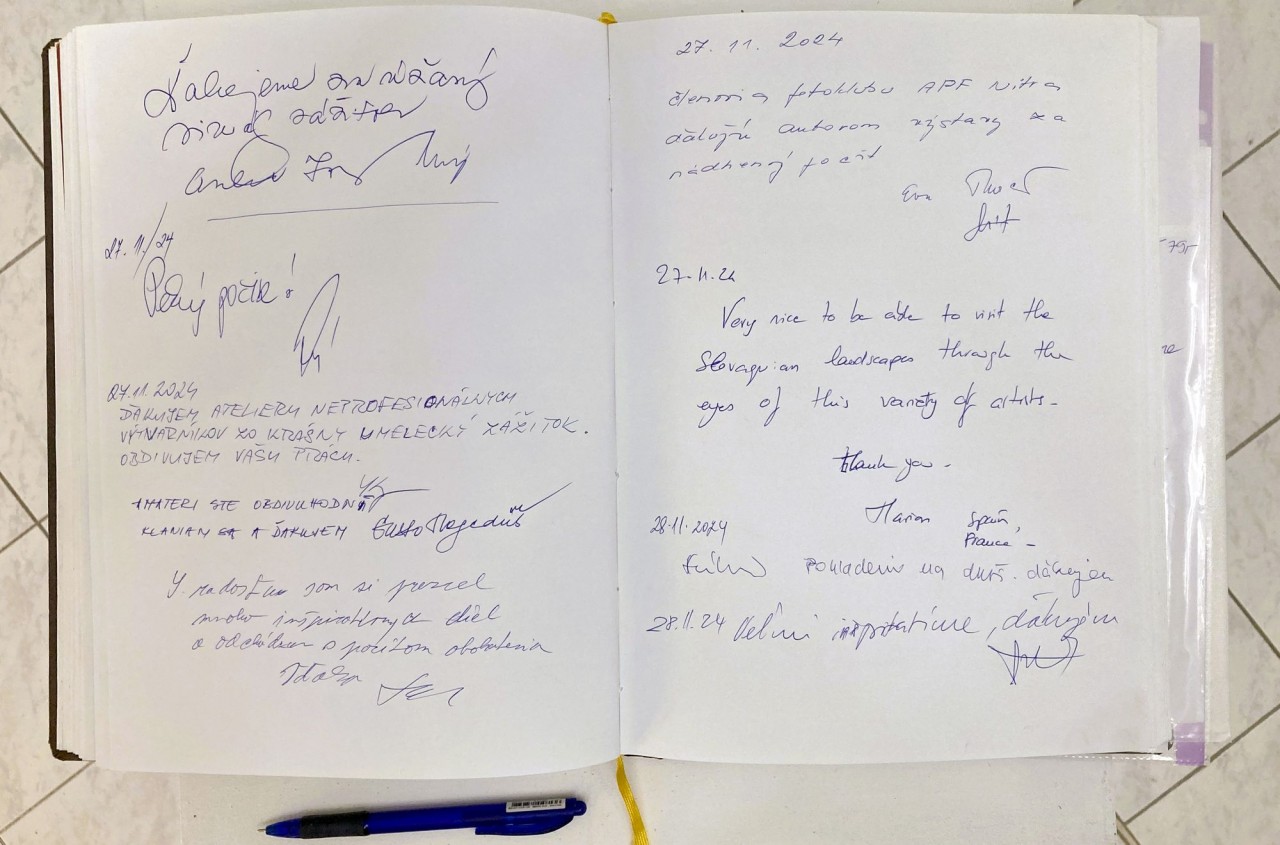 Ďakujeme za úžasný
zážitok
27.11./24
Pekný počin!
27.11.2024
ĎAKUJEM ATELIERU NEPROFESIONÁLNYCH
VÝTVARNÍKOV ZO KRÁSNY UMELECKÝ ZÁŽITOK.
OBDIVUJEM VAŠU PRÁCU.
AMATERI STE OBDIVUHODNÍ
KLANIAM SA A ĎAKUJEM
S radosťou som si prezrel
mnoho inšpiratívnych diel
a odchádzam s pocitom obohatenia
27. 11. 2024
členovia fotoklubu APF Nitra
ďakujú autorom výstavy za
nádherný pocit
Eva
27.11.24
Very nice to be able to visit the
Slovaquian landscapes through the
eyes of this variety of artists-
Thank you-
Marion Spain,
France-
28.11.2024
pohladenie na duši. ďakujem
28.11.24 Veľmi inšpiratívne, ďakujem